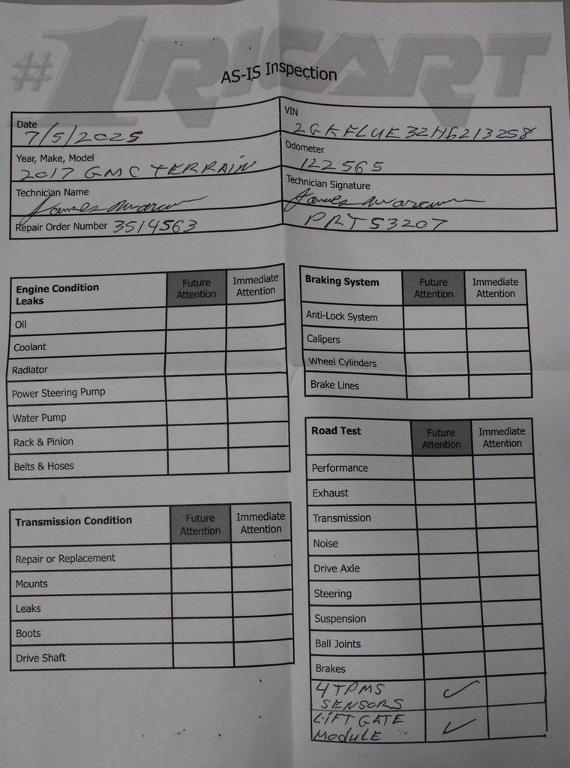 #1 RICART
AS-IS Inspection
Date
7/5/2025
VIN
2GKFLUE32H6213258
Year, Make, Model
2017 GMC TERRAIN
Odometer
122565
Technician Name
Technician Signature
Repair Order Number 3514563
PRT53207
Engine Condition
Leaks
Future
Attention
Immediate
Attention
Oil
Coolant
Radiator
Power Steering Pump
Water Pump
Rack & Pinion
Belts & Hoses
Transmission Condition
Future
Attention
Immediate
Attention
Repair or Replacement
Mounts
Leaks
Boots
Drive Shaft
Braking System
Future
Attention
Immediate
Attention
Anti-Lock System
Calipers
Wheel Cylinders
Brake Lines
Road Test
Future
Attention
Immediate
Attention
Performance
Exhaust
Transmission
Noise
Drive Axle
Steering
Suspension
Ball Joints
Brakes
4 TPMS
SENSORS ✓
LIFTGATE
MODULE ✓